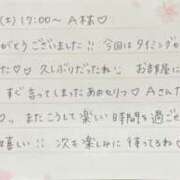 (木) 17:00〜 A様♡
がとうございました!! 今回はタイミングが
た♡ 久しぶりだったね♪ お部屋に
すぐ言ってしまったあのセリフ♡ Aさんた
♡。 またこうして楽しい時間を過ご
嬉しい!! 次も楽しみに待ってるね♡